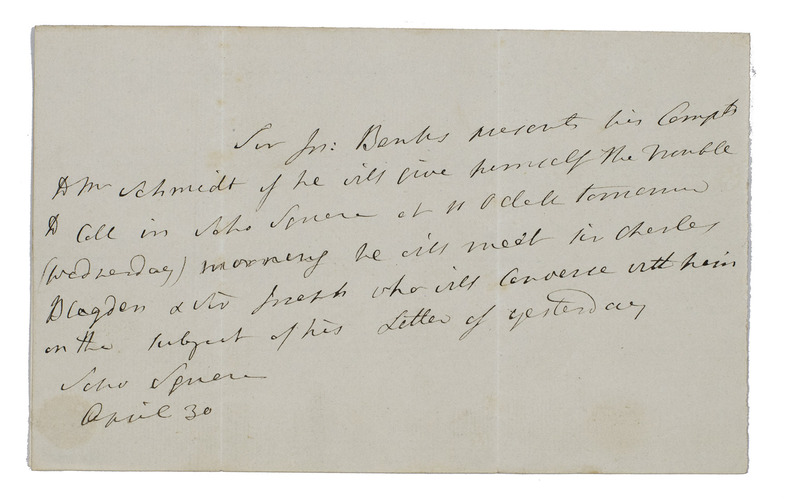 Sir Jos: Banks presents his Compts
to Mr Schmidt if he will give himself the trouble
to Call in Soho Square at 11 OClock tomorrow
(wednesday) morning he will meet Sir Charles
Blagden & Sir Joseph who will Converse with him
on the subject of his Letter of yesterday
Soho Square
April 30